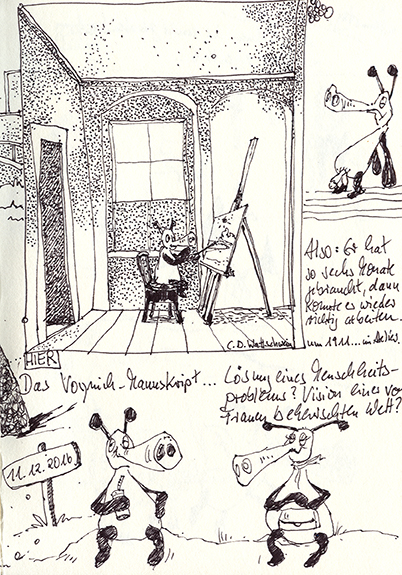 Also: Er hat
so sechs Monate
gebraucht, dann
konnte es wieder
richtig arbeiten.
um 1911... in
C.D. Wattschwein
HIER
Das Voynich-Manuskript...
Lösung eines Menschheits-
problems? Vision eines von
Frauen beherrschten Welt?
11.12.2016